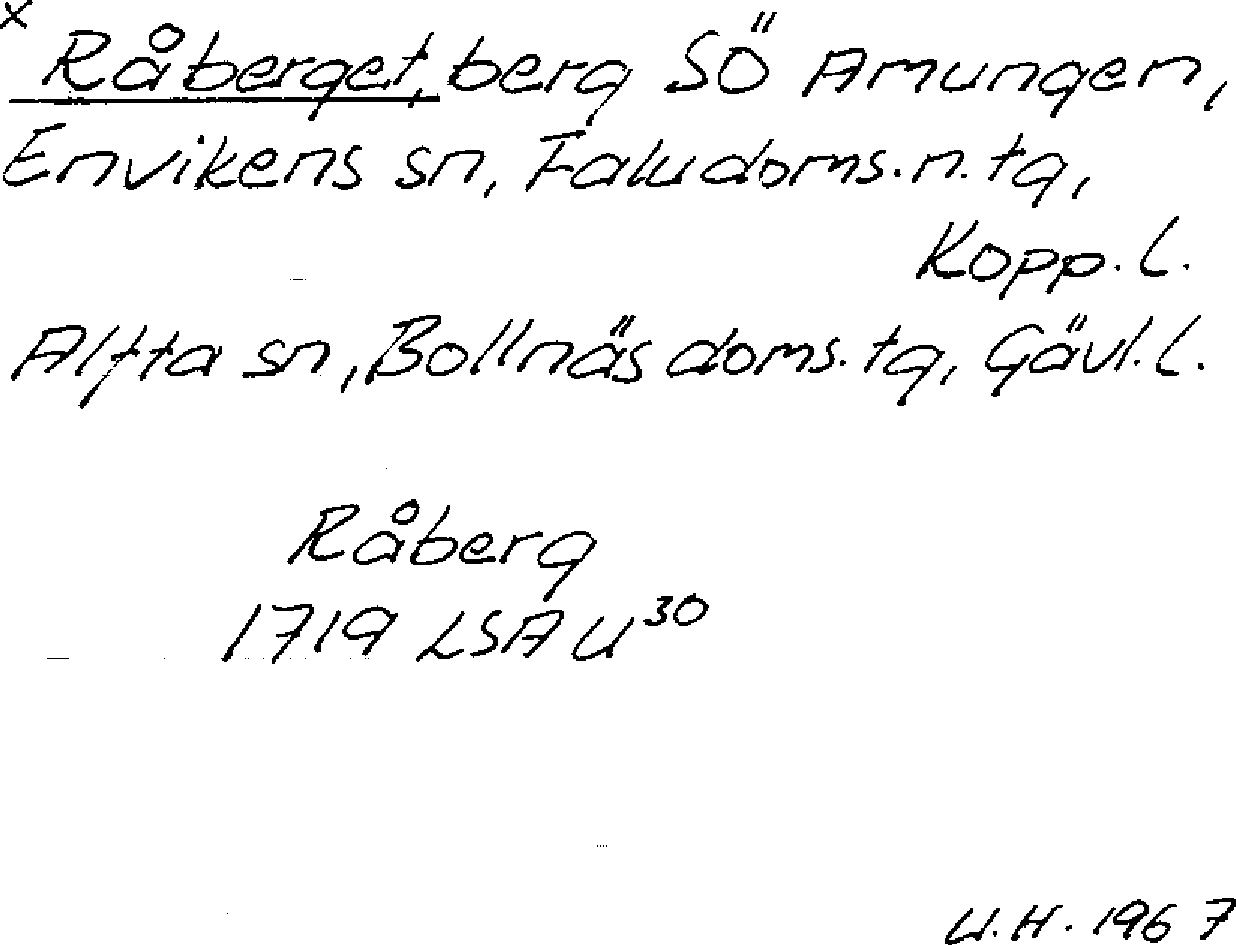 x
Råberget, berg SÖ Amungen,
Envikens sn, Falu doms.n.tg,
Kopp.l.
Alfta sn, Bollnäs doms.tg, Gävl.l.
Råberg
1719 LSA U³⁰
U.H. 1967